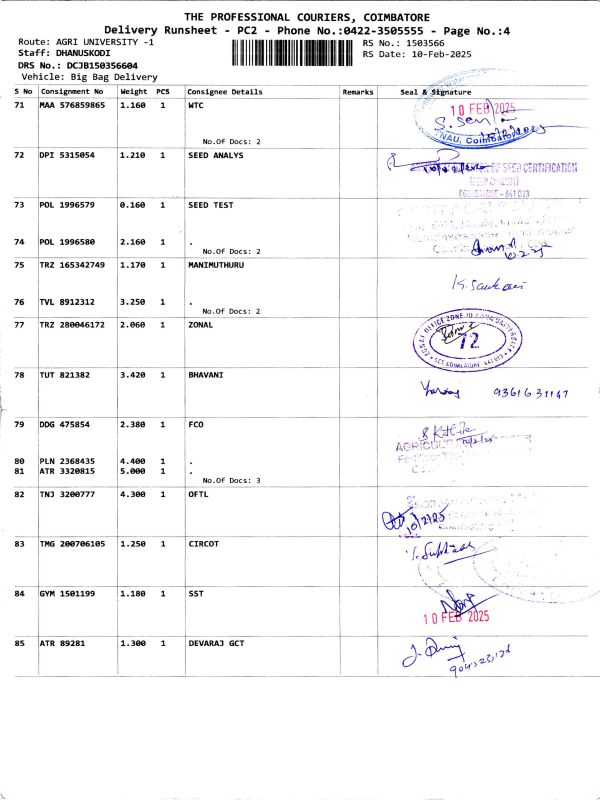 THE PROFESSIONAL COURIERS, COIMBATORE
Delivery Runsheet - PC2 - Phone No.:0422-3505555 - Page No.:4
Route: AGRI UNIVERSITY -1 RS No.: 1503566
Staff: DHANUSKODI RS Date: 10-Feb-2025
DRS No.: DCJB150356604
Vehicle: Big Bag Delivery
S No Consignment No Weight PCS Consignee Details Remarks Seal & Signature
71 MAA 576859865 1.160 1 WTC
10 FEB 2025
TNAU, Coimbatore
No.Of Docs: 2
72 DPI 5315054 1.210 1 SEED ANALYS
OF SEED CERTIFICATION
73 POL 1996579 0.160 1 SEED TEST
74 POL 1996580 2.160 1 .
No.Of Docs: 2
75 TRZ 165342749 1.170 1 MANIMUTHURU
76 TVL 8912312 3.250 1 .
No.Of Docs: 2
77 TRZ 280046172 2.060 1 ZONAL
72
78 TUT 821382 3.420 1 BHAVANI
9361631147
79 DDG 475854 2.380 1 FCO
80 PLN 2368435 4.400 1 .
81 ATR 3320815 5.000 1 .
No.Of Docs: 3
82 TNJ 3200777 4.300 1 OFTL
10/2/25
83 TMG 200706105 1.250 1 CIRCOT
84 GYM 1501199 1.180 1 SST
10 FEB 2025
85 ATR 89281 1.300 1 DEVARAJ GCT